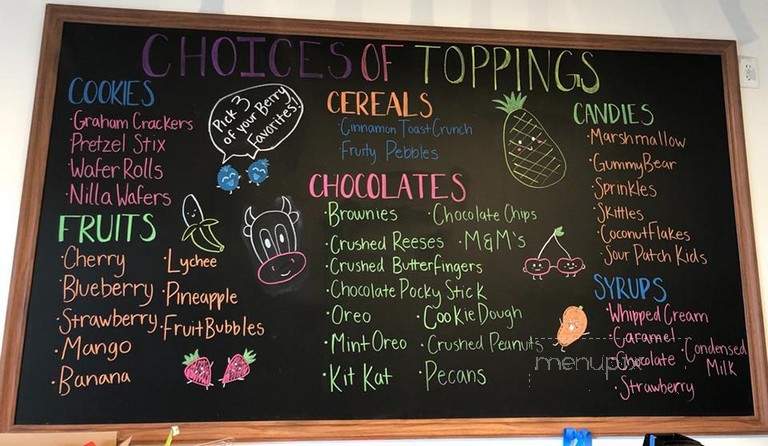 CHOICES OF TOPPINGS
COOKIES
·Graham Crackers
·Pretzel Stix
·Wafer Rolls
·Nilla Wafers
Pick 3
of your Berry
Favorites!
FRUITS
·Cherry
·Blueberry
·Strawberry
·Mango
·Banana
·Lychee
·Pineapple
·Fruit Bubbles
CEREALS
·Cinnamon Toast Crunch
Fruity Pebbles
CHOCOLATES
·Brownies
·Crushed Reeses
·Crushed Butterfingers
·Chocolate Pocky Stick
·Oreo
·Mint Oreo
·Kit Kat
·Chocolate Chips
·M&M's
·Cookie Dough
·Crushed Peanuts
·Pecans
CANDIES
·Marshmallow
·Gummy Bear
·Sprinkles
·Skittles
·Coconut Flakes
·Sour Patch Kids
SYRUPS
·Whipped Cream
·Caramel
·Chocolate
·Strawberry
·Condensed
Milk
menupix